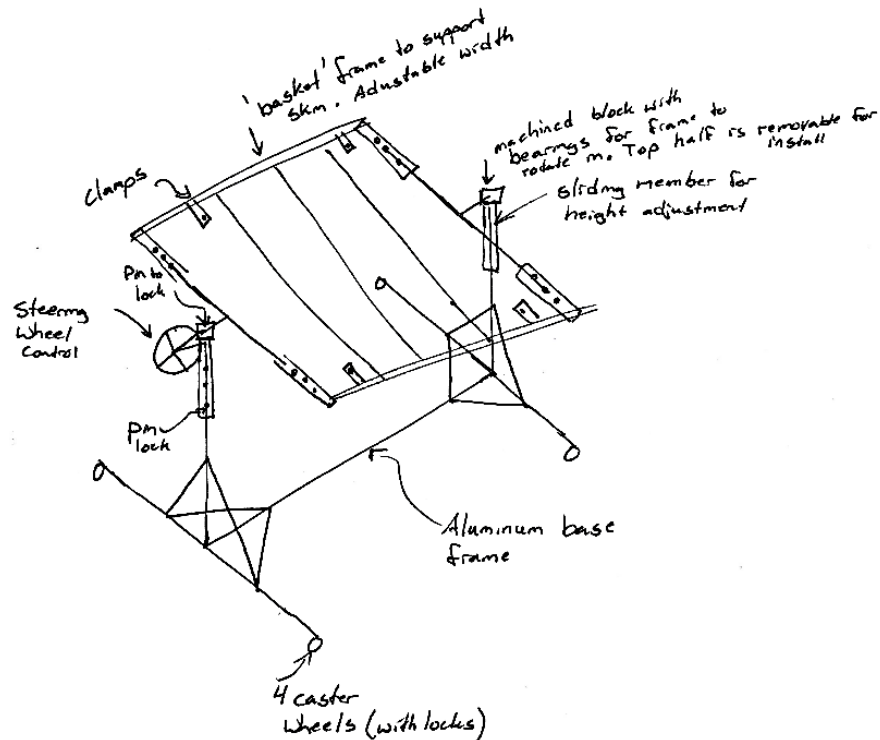 'basket' frame to support
skin. Adustable width
machined block with
bearings for frame to
rotate in. Top half is removable for
install
sliding member for
height adjustment
clamps
Pin to
lock
Steering
Wheel
Control
Pin
lock
Aluminum base
frame
4 caster
wheels (with locks)